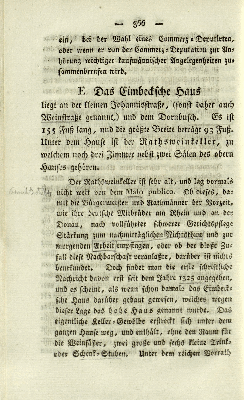 — 366 —
ein, bei der Wahl eines Commerz-Deputirten,
oder wenn er von der Commerz-Deputation zur An-
hörung wichtiger kaufmännischer Angelegenheiten zu-
sammenberufen wird.
F. Das Eimbecksche Haus
liegt an der kleinen Johannisstraße, (sonst daher auch
Weinstraße genannt,) und dem Dornbusch. Es ist
155 Fuß lang, und die größte Breite beträgt 93 Fuß.
Unter dem Hause ist der Rathsweinkeller, zu
welchem noch drei Zimmer nebst zwei Sälen des obern
Hauses gehören.
Der Rathsweinkeller ist sehr alt, und lag vormals
nicht weit von dem Malo publico. Ob dieses, dar-
mit die Bürgermeister und Rathmänner der Vorzeit,
wie ihre deutsche Mitbrüder am Rhein und an der
Donau, nach vollführter schwerer Gerichtspflege
Stärkung zum nachmittäglichen Nichtsthun und zur
morgenden Arbeit empfingen, oder ob der bloße Zu-
fall diese Nachbarschaft veranlaßte, darüber ist nichts
bekannt. Doch findet man die erste schriftliche
Nachricht davon erst seit dem Jahre 1325 angegeben,
und es scheint, als wenn schon damals das Eimbeck-
sche Haus darüber gebaut gewesen, welches wegen
dieser Lage das hohe Haus genannt wurde. Das
eigentliche Keller-Gewölbe erstreckt sich unter dem
ganzen Hause weg, und enthält, ohne den Raum für
die Weinfässer, zwei große und sechs kleine Trink-
oder Schenk-Stuben. Unter dem reichen Vorrath